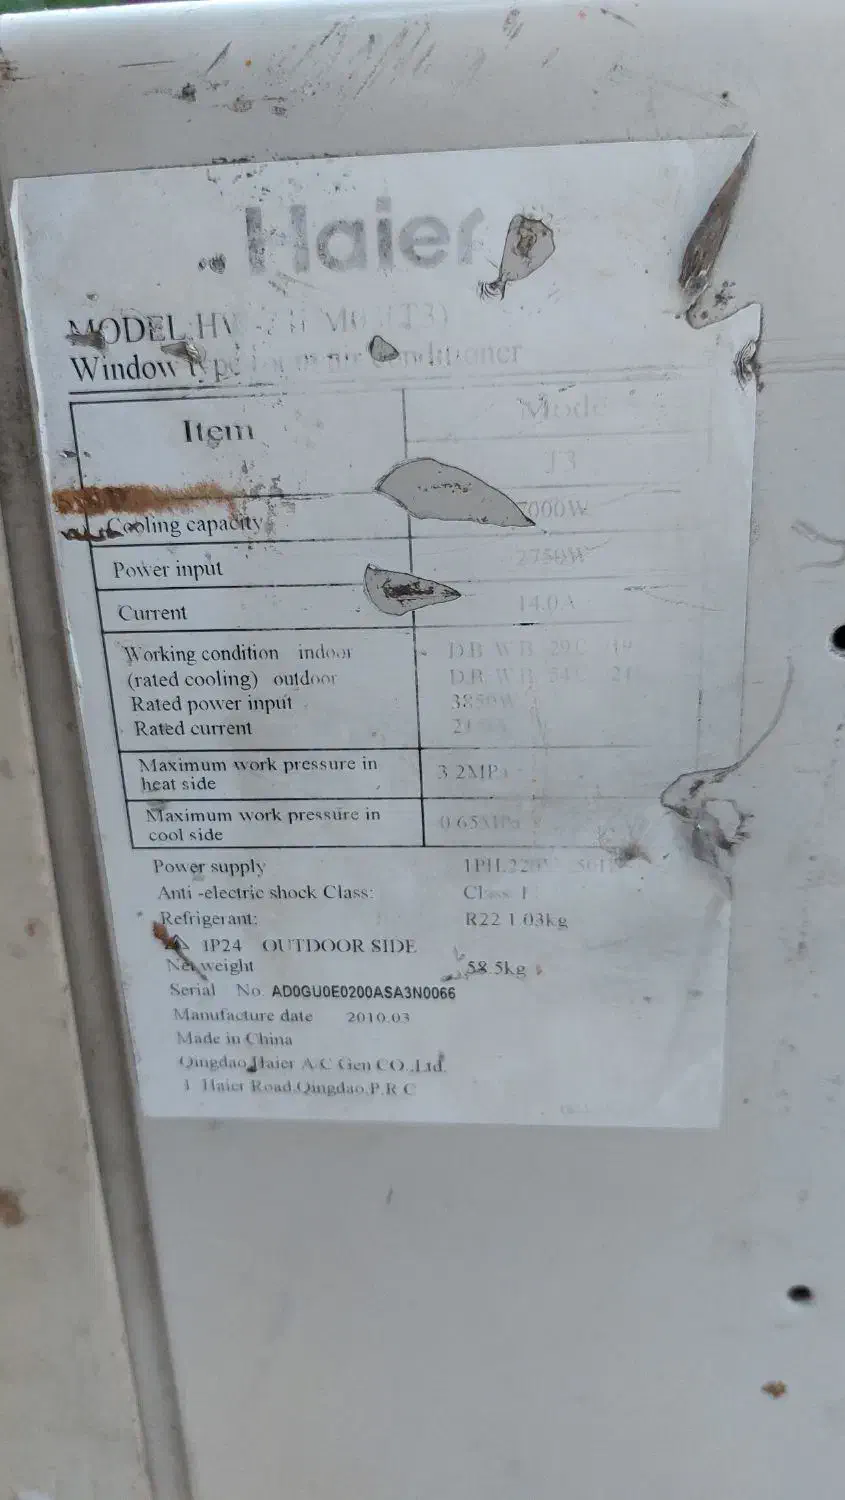 Haier
MODEL:
Window type room air conditioner
Item
Model
T3
Cooling capacity 7000W
Power input 2750W
Current 14.0A
Working condition indoor DB WB 29C 19
(rated cooling) outdoor DB WB 54C 24
Rated power input 3850W
Rated current
Maximum work pressure in
heat side
3.2MPa
Maximum work pressure in
cool side
0.65MPa
Power supply 1PH.220V
Anti -electric shock Class: Class I
Refrigerant: R22 1.03kg
IP24 OUTDOOR SIDE
Net weight 58.5kg
Serial No. AD0GU0E0200ASA3N0066
Manufacture date 2010.03
Made in China
Qingdao Haier A/C Gen CO.,Ltd.
1 Haier Road.Qingdao.P.R.C